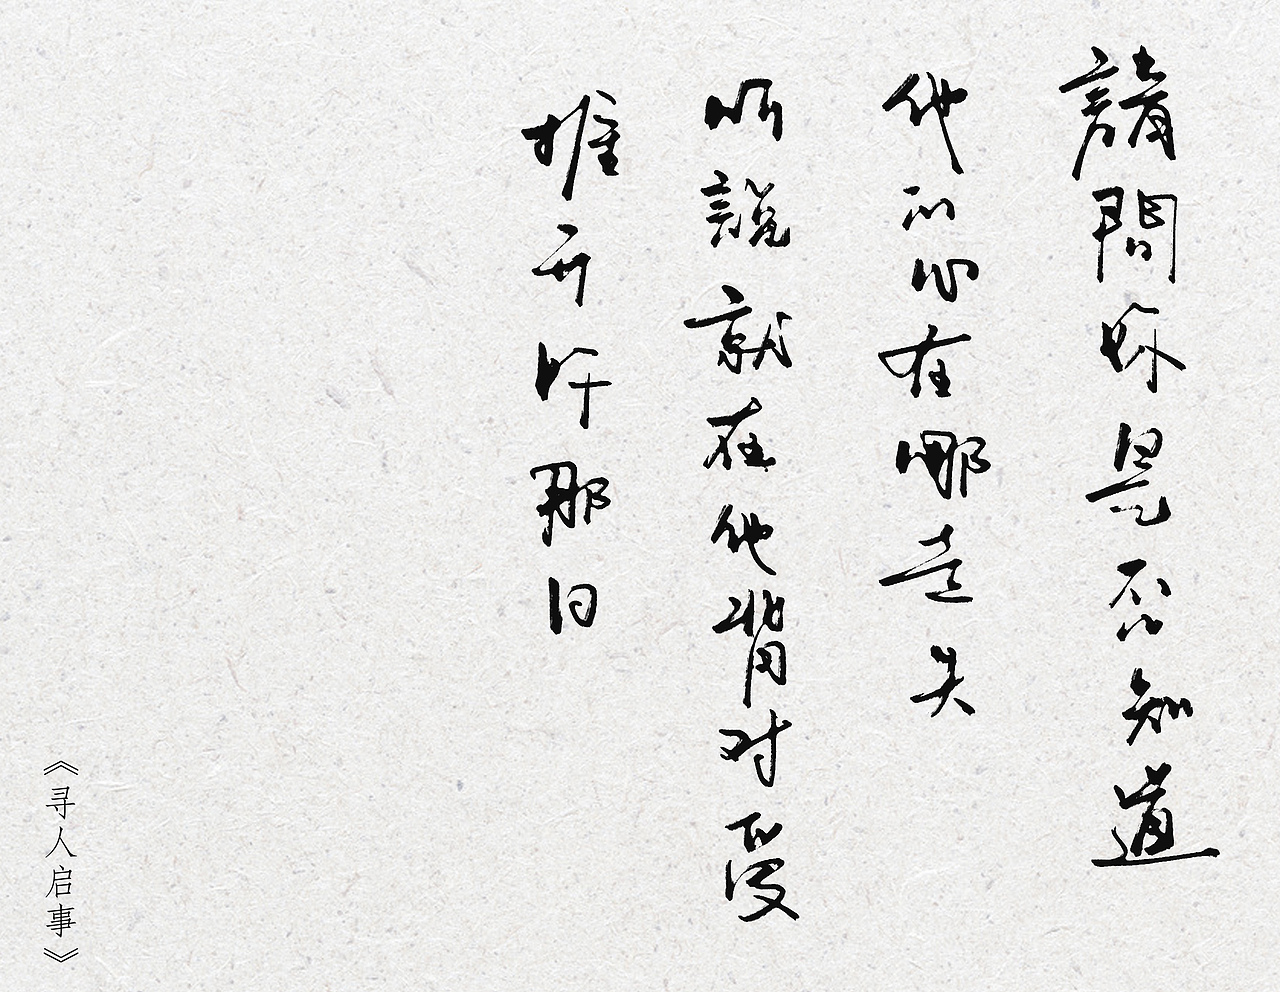 請問妳是否知道
他的心在哪走失
听說就在他背对
推开那日
《寻人启事》